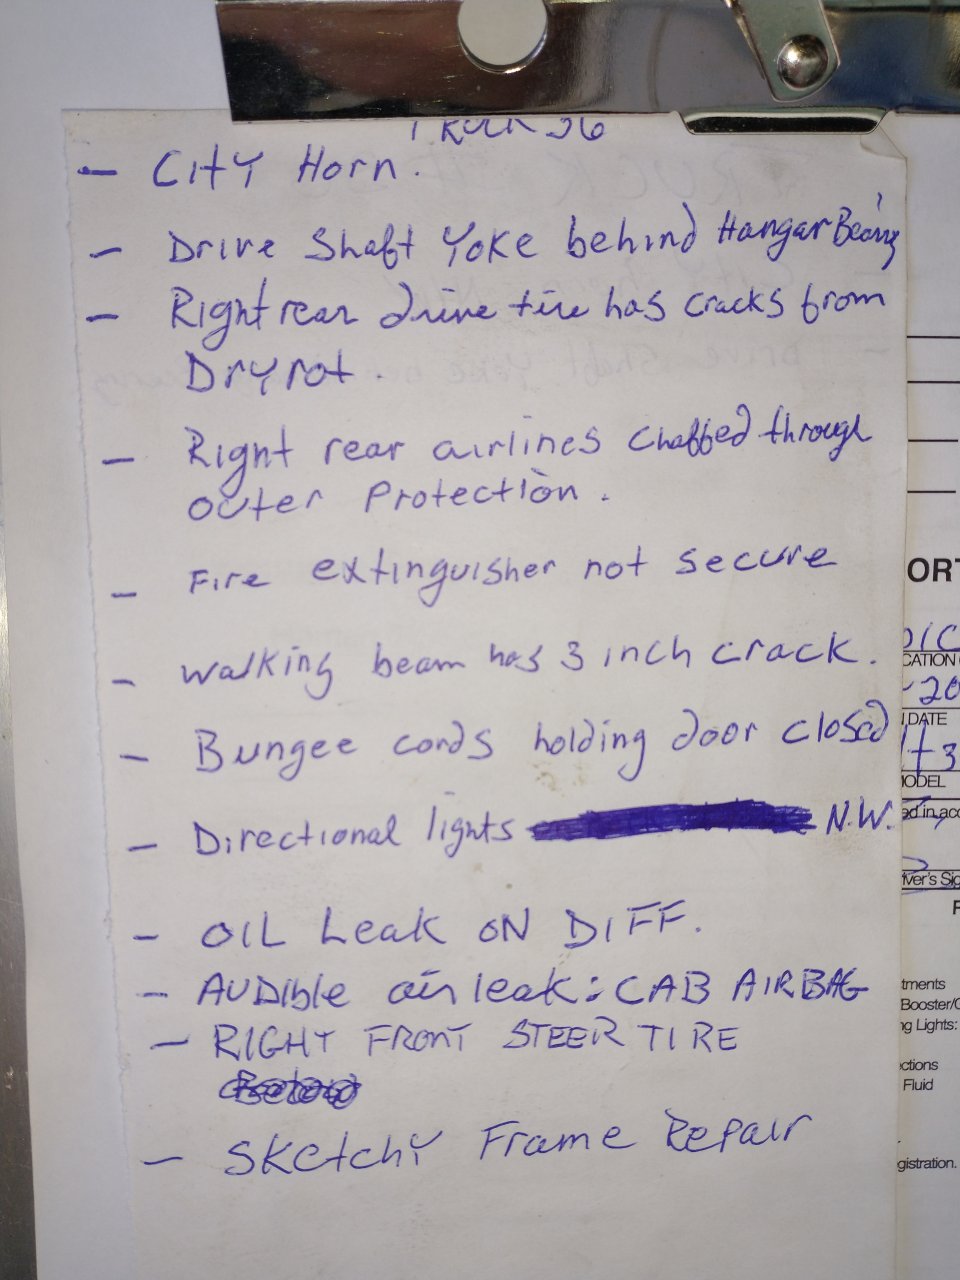 TRUCK 36
- City Horn.
- Drive Shaft Yoke behind Hangar Bearing
- Right rear drive tire has cracks from
Dryrot.
- Right rear airlines chaffed through
outer Protection.
- Fire extinguisher not secure
- Walking beam has 3 inch crack.
- Bungee cords holding door closed
- Directional lights N.W.
- OIL Leak ON DIFF.
- AUDible air leak: CAB AIRBAG
- RIGHT FRONT STEER TIRE
- Sketchy Frame Repair
ORT
CATION
-20
DATE
ODEL
ed in acc
iver's Sig
tments
Booster/
ng Lights:
ctions
Fluid
gistration.